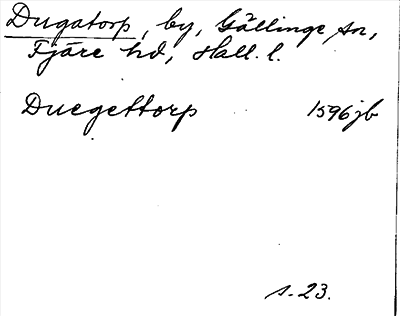 Dugatorp, by, Gällinge sn,
Fjäre hd, Hall. l.
Duegettorp 1596 jb
s. 23.